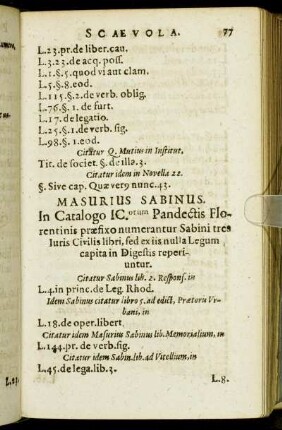 SCAEVOLA. 77
L.23.pr.de liber.cau.
L.3.23.de acq. poss.
L.1.§.5.quod vi aut clam.
L.5.§.8.eod.
L.115.§.2.de verb. oblig.
L.76.§.1.de furt.
L.17.de legatio.
L.25.§.1.de verb. sig.
L.98.§.1.eod.
Citatur Q. Mutius in Institut.
Tit. de societ. §. de illa.3.
Citatur idem in Novella 22.
§. Sive cap. Quæ verò nunc.43.
MASURIUS SABINUS.
In Catalogo IC.orum Pandectis Flo-
rentinis præfixo numerantur Sabini tres
Iuris Civilis libri, sed ex iis nulla Legum
capita in Digestis reperi-
untur.
Citatur Sabinus lib. 2. Respons. in
L.4.in princ.de Leg. Rhod.
Idem Sabinus citatur libro 5. ad edict. Prætoris Ur-
bani, in
L.18.de oper.libert.
Citatur idem Masurius Sabinus lib. Memorialium, in
L.144.pr. de verb. sig.
Citatur idem Sabin. lib. ad Vitellium, in
L.45.de lega.lib.3.
L.8.